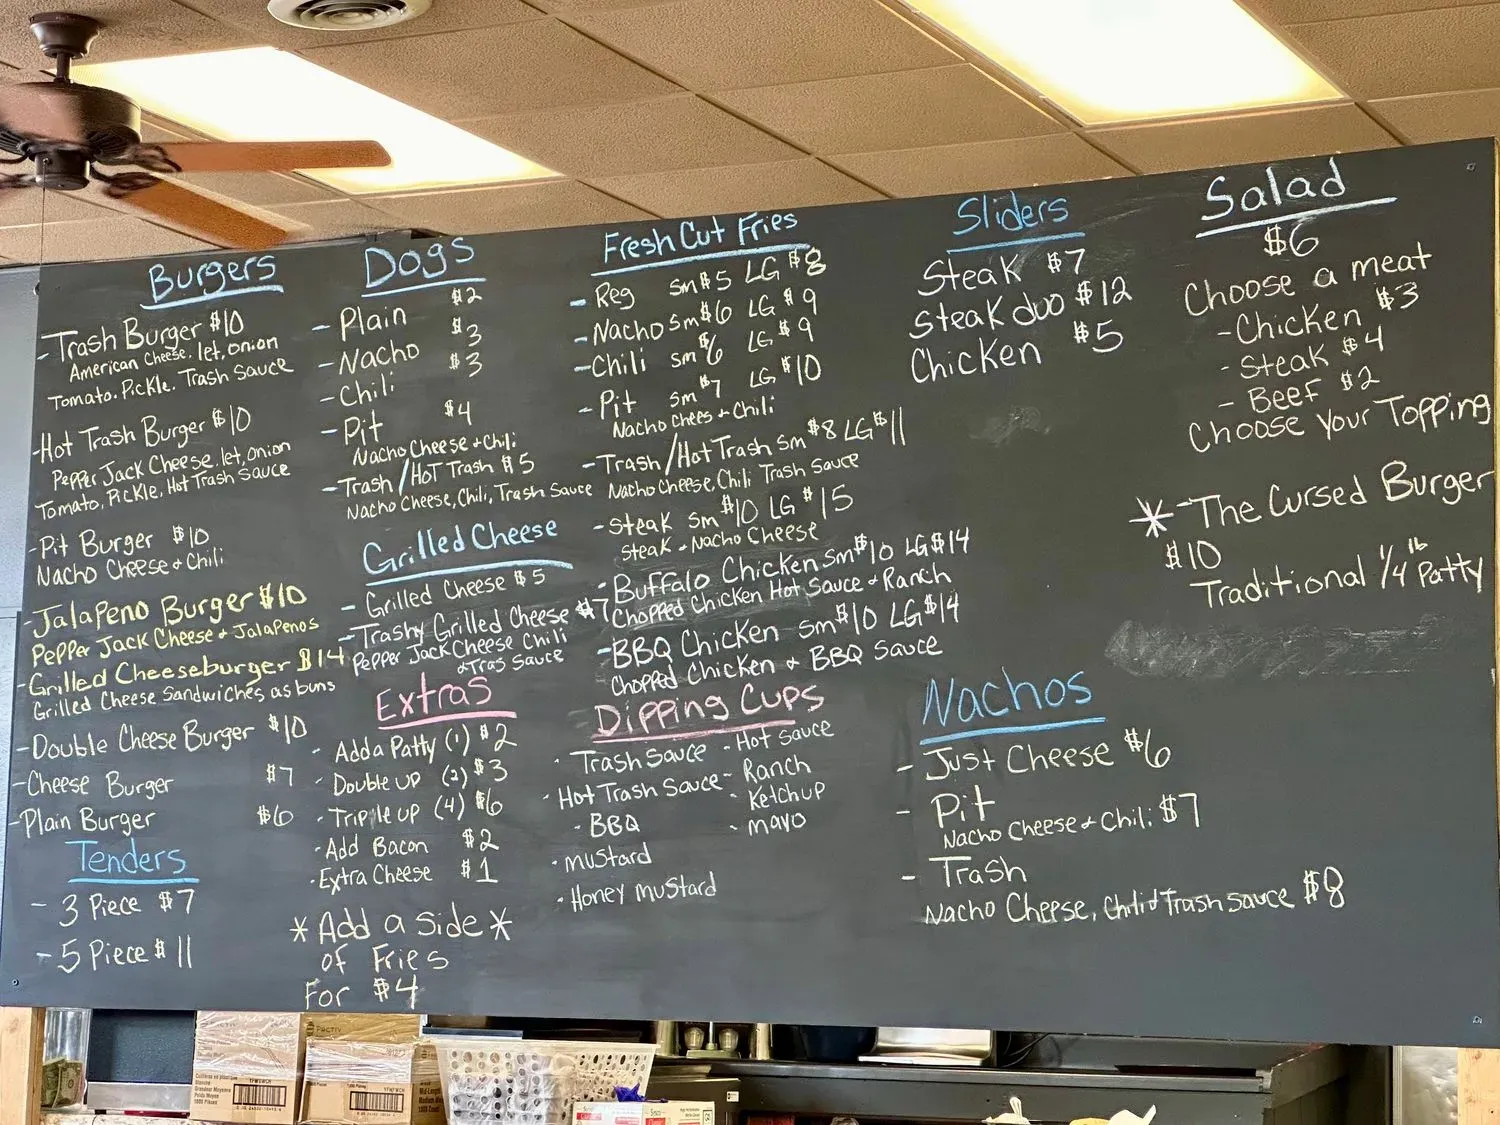 Burgers
- Trash Burger $10
American Cheese. let, onion
Tomato. Pickle. Trash Sauce
- Hot Trash Burger $10
Pepper Jack Cheese. let, onion
Tomato, Pickle, Hot Trash Sauce
- Pit Burger $10
Nacho Cheese & Chili
- Jalapeno Burger $10
Pepper Jack Cheese & Jalapenos
- Grilled Cheeseburger $14
Grilled Cheese Sandwiches as buns
- Double Cheese Burger $10
- Cheese Burger $7
- Plain Burger $6
Tenders
- 3 Piece $7
- 5 Piece $11
Dogs
- Plain $2
- Nacho $3
- Chili $3
- Pit $4
Nacho Cheese & Chili
- Trash/Hot Trash $5
Nacho Cheese, Chili, Trash Sauce
Grilled Cheese
- Grilled Cheese $5
- Trashy Grilled Cheese $7
Pepper Jack Cheese Chili
& Tras Sauce
Extras
- Add a Patty (1) $2
- Double up (2) $3
- Triple up (4) $6
- Add Bacon $2
- Extra Cheese $1
* Add a side *
of Fries
For $4
Fresh Cut Fries
- Reg Sm $5 LG $8
- Nacho Sm $6 LG $9
- Chili Sm $6 LG $9
- Pit Sm $7 LG $10
Nacho Chees & Chili
- Trash/Hot Trash Sm $8 LG $11
Nacho Cheese, Chili Trash Sauce
- Steak Sm $10 LG $15
Steak & Nacho Cheese
- Buffalo Chicken Sm $10 LG $14
Chopped Chicken Hot Sauce & Ranch
- BBQ Chicken Sm $10 LG $14
Chopped Chicken & BBQ Sauce
Dipping Cups
- Trash Sauce - Hot Sauce
- Hot Trash Sauce - Ranch
- BBQ - Ketchup
- mustard - mayo
- Honey mustard
Sliders
Steak $7
Steak duo $12
Chicken $5
Salad
$6
Choose a meat
- Chicken $3
- Steak $4
- Beef $2
Choose your Topping
* - The Cursed Burger
$10
Traditional 1/4 lb Patty
Nachos
- Just Cheese $6
- Pit
Nacho Cheese & Chili $7
- Trash
Nacho Cheese, Chili & Trash Sauce $8